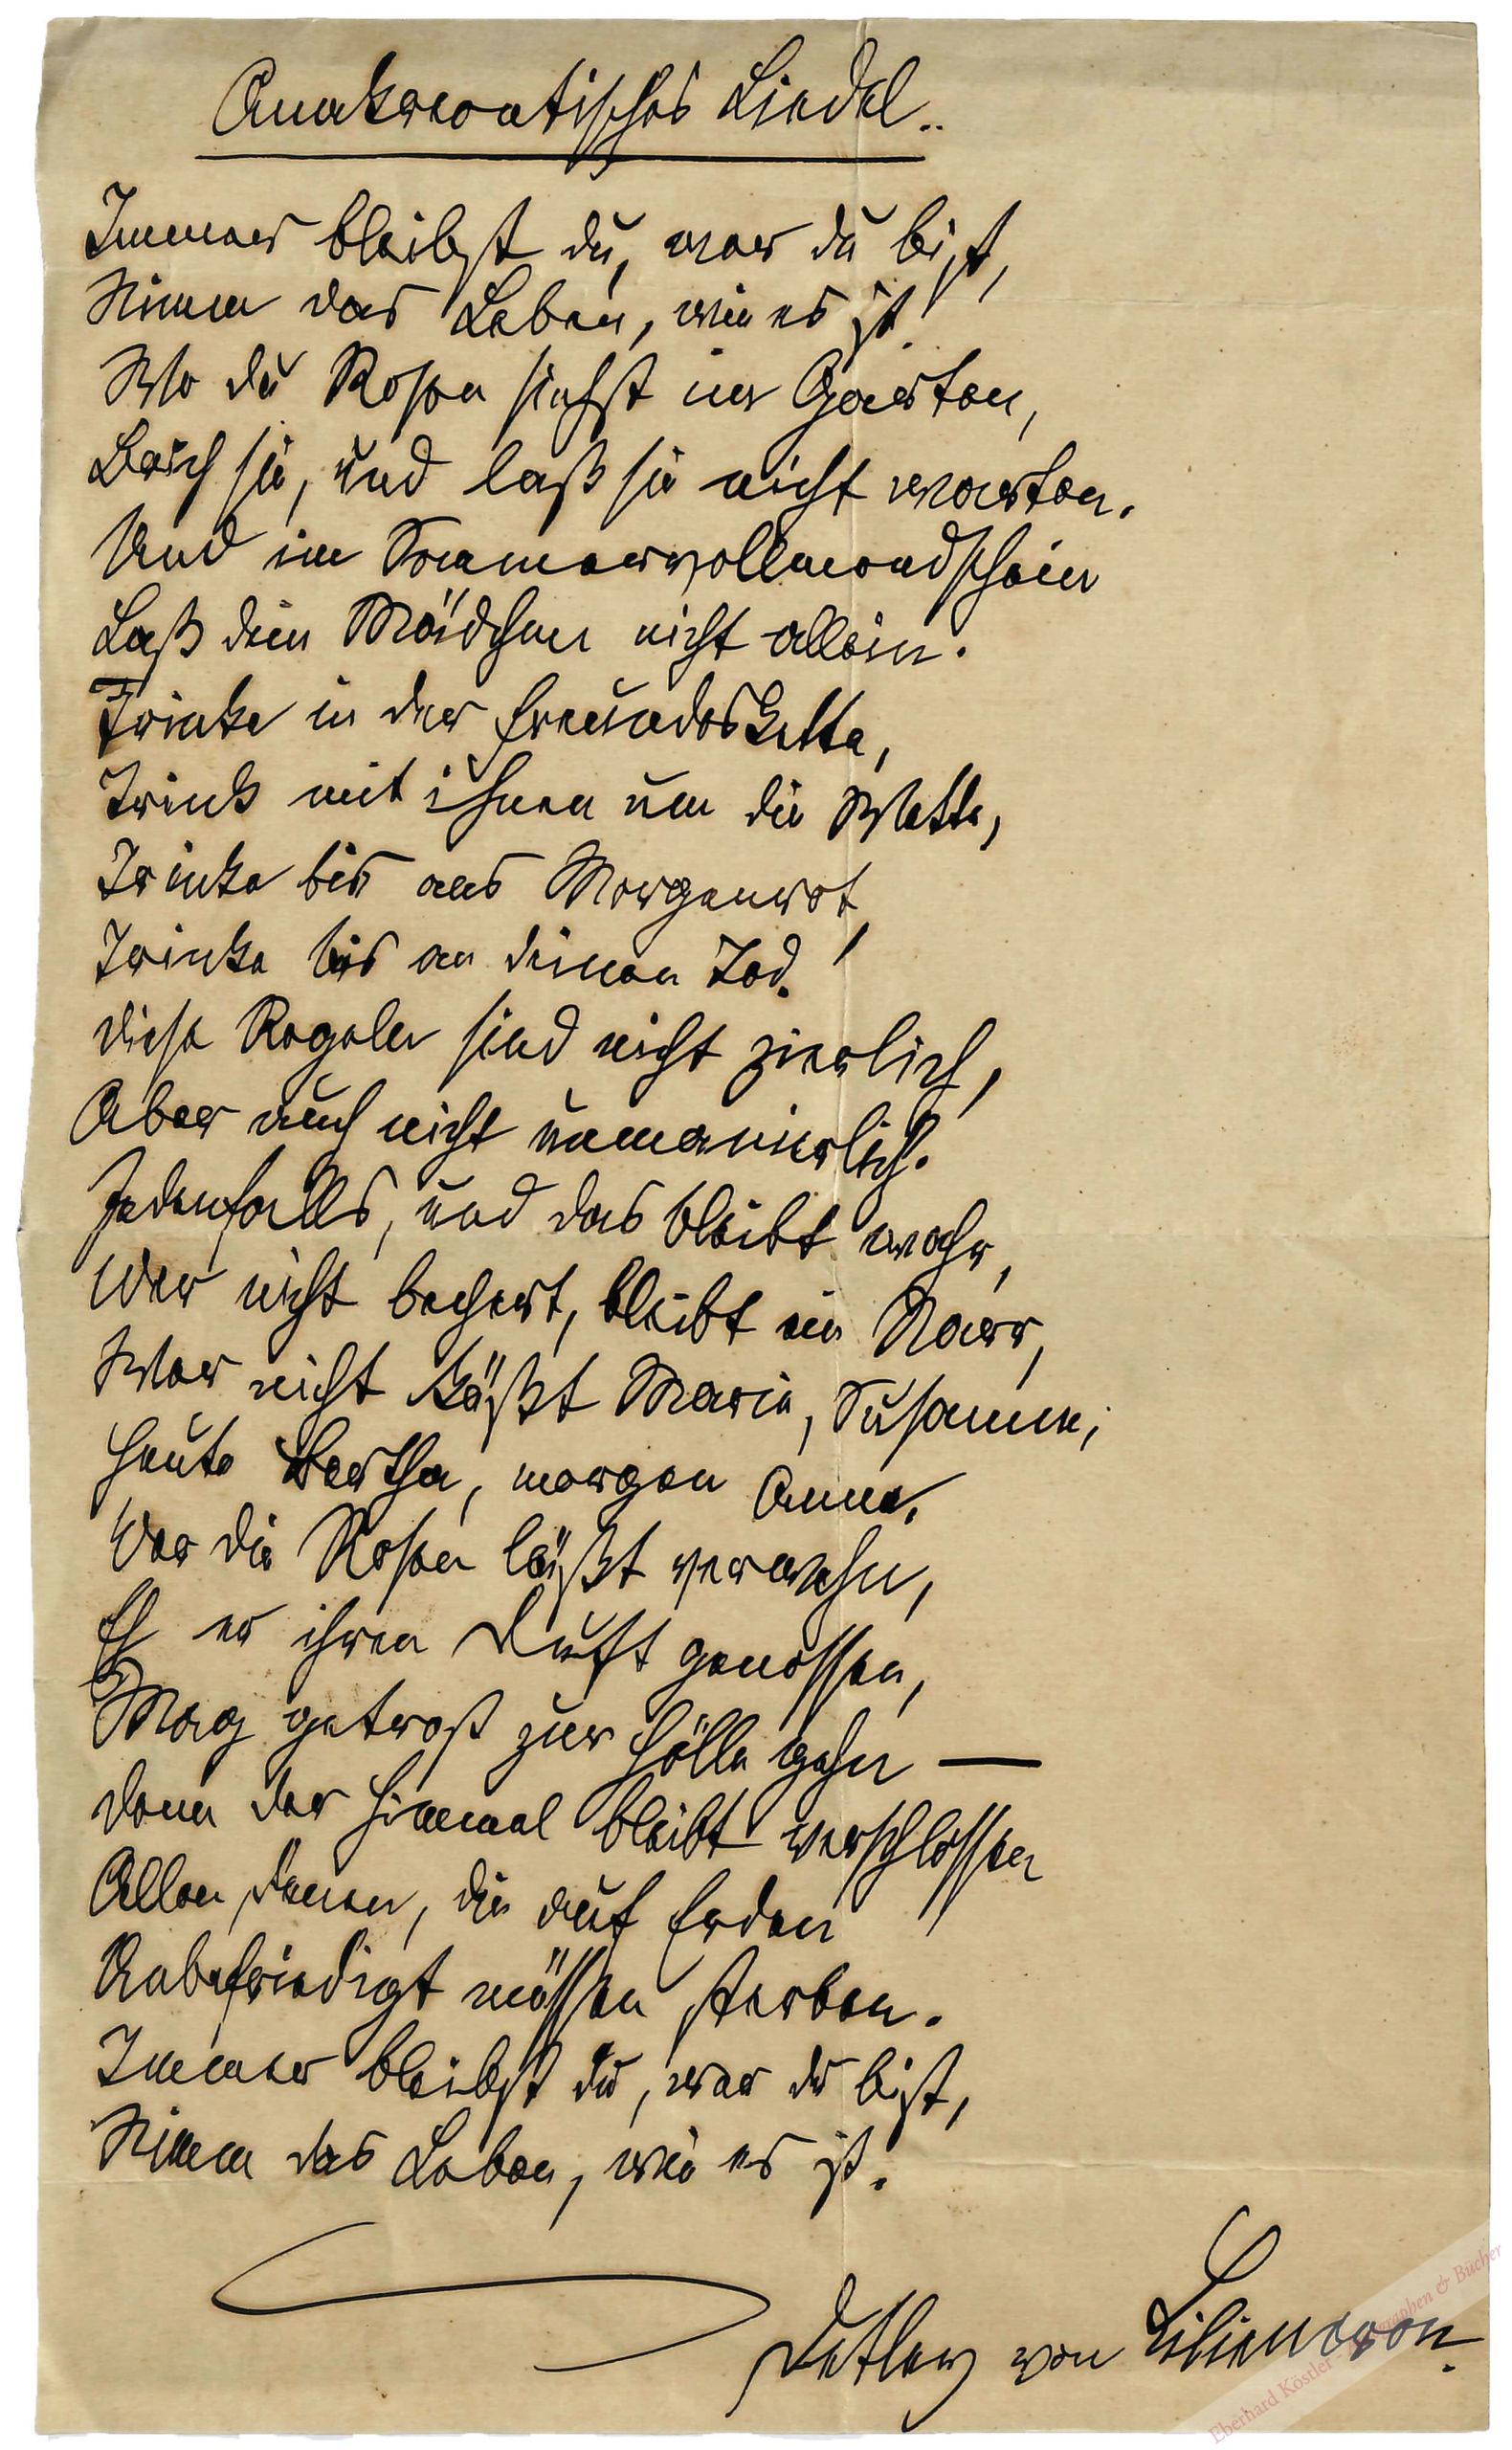 Anakreontisches Liedel..
Immer bleibst du, wer du bist,
Nimm das Leben, wie es ist!
Wo du Rosen siehst im Garten,
Brich sie, und laß sie nicht warten.
Und im Sommervollmondschein
Laß dein Mädchen nicht allein.
Trinke in der Freundeskette,
Trink mit ihnen um die Wette,
Trinke bis ans Morgenrot,
Trinke bis an deinen Tod!
Diese Regeln sind nicht zierlich,
Aber auch nicht unmanierlich.
Jedenfalls, und das bleibt wahr,
Wer nicht bechert, bleibt ein Narr,
Wer nicht küßt Marie, Susanne,
Heute Bertha, morgen Anne.
Wer die Rosen läßt verwehn,
Eh er ihren Duft genossen,
Mag getrost zur Hölle gehn —
Denn der Himmel bleibt verschlossen
Allen denen, die auf Erden
Unbefriedigt müssen sterben.
Immer bleibst du, wer du bist,
Nimm das Leben, wie es ist.
Detlev von Liliencron.
Eberhard Köstler Autographen & Bücher